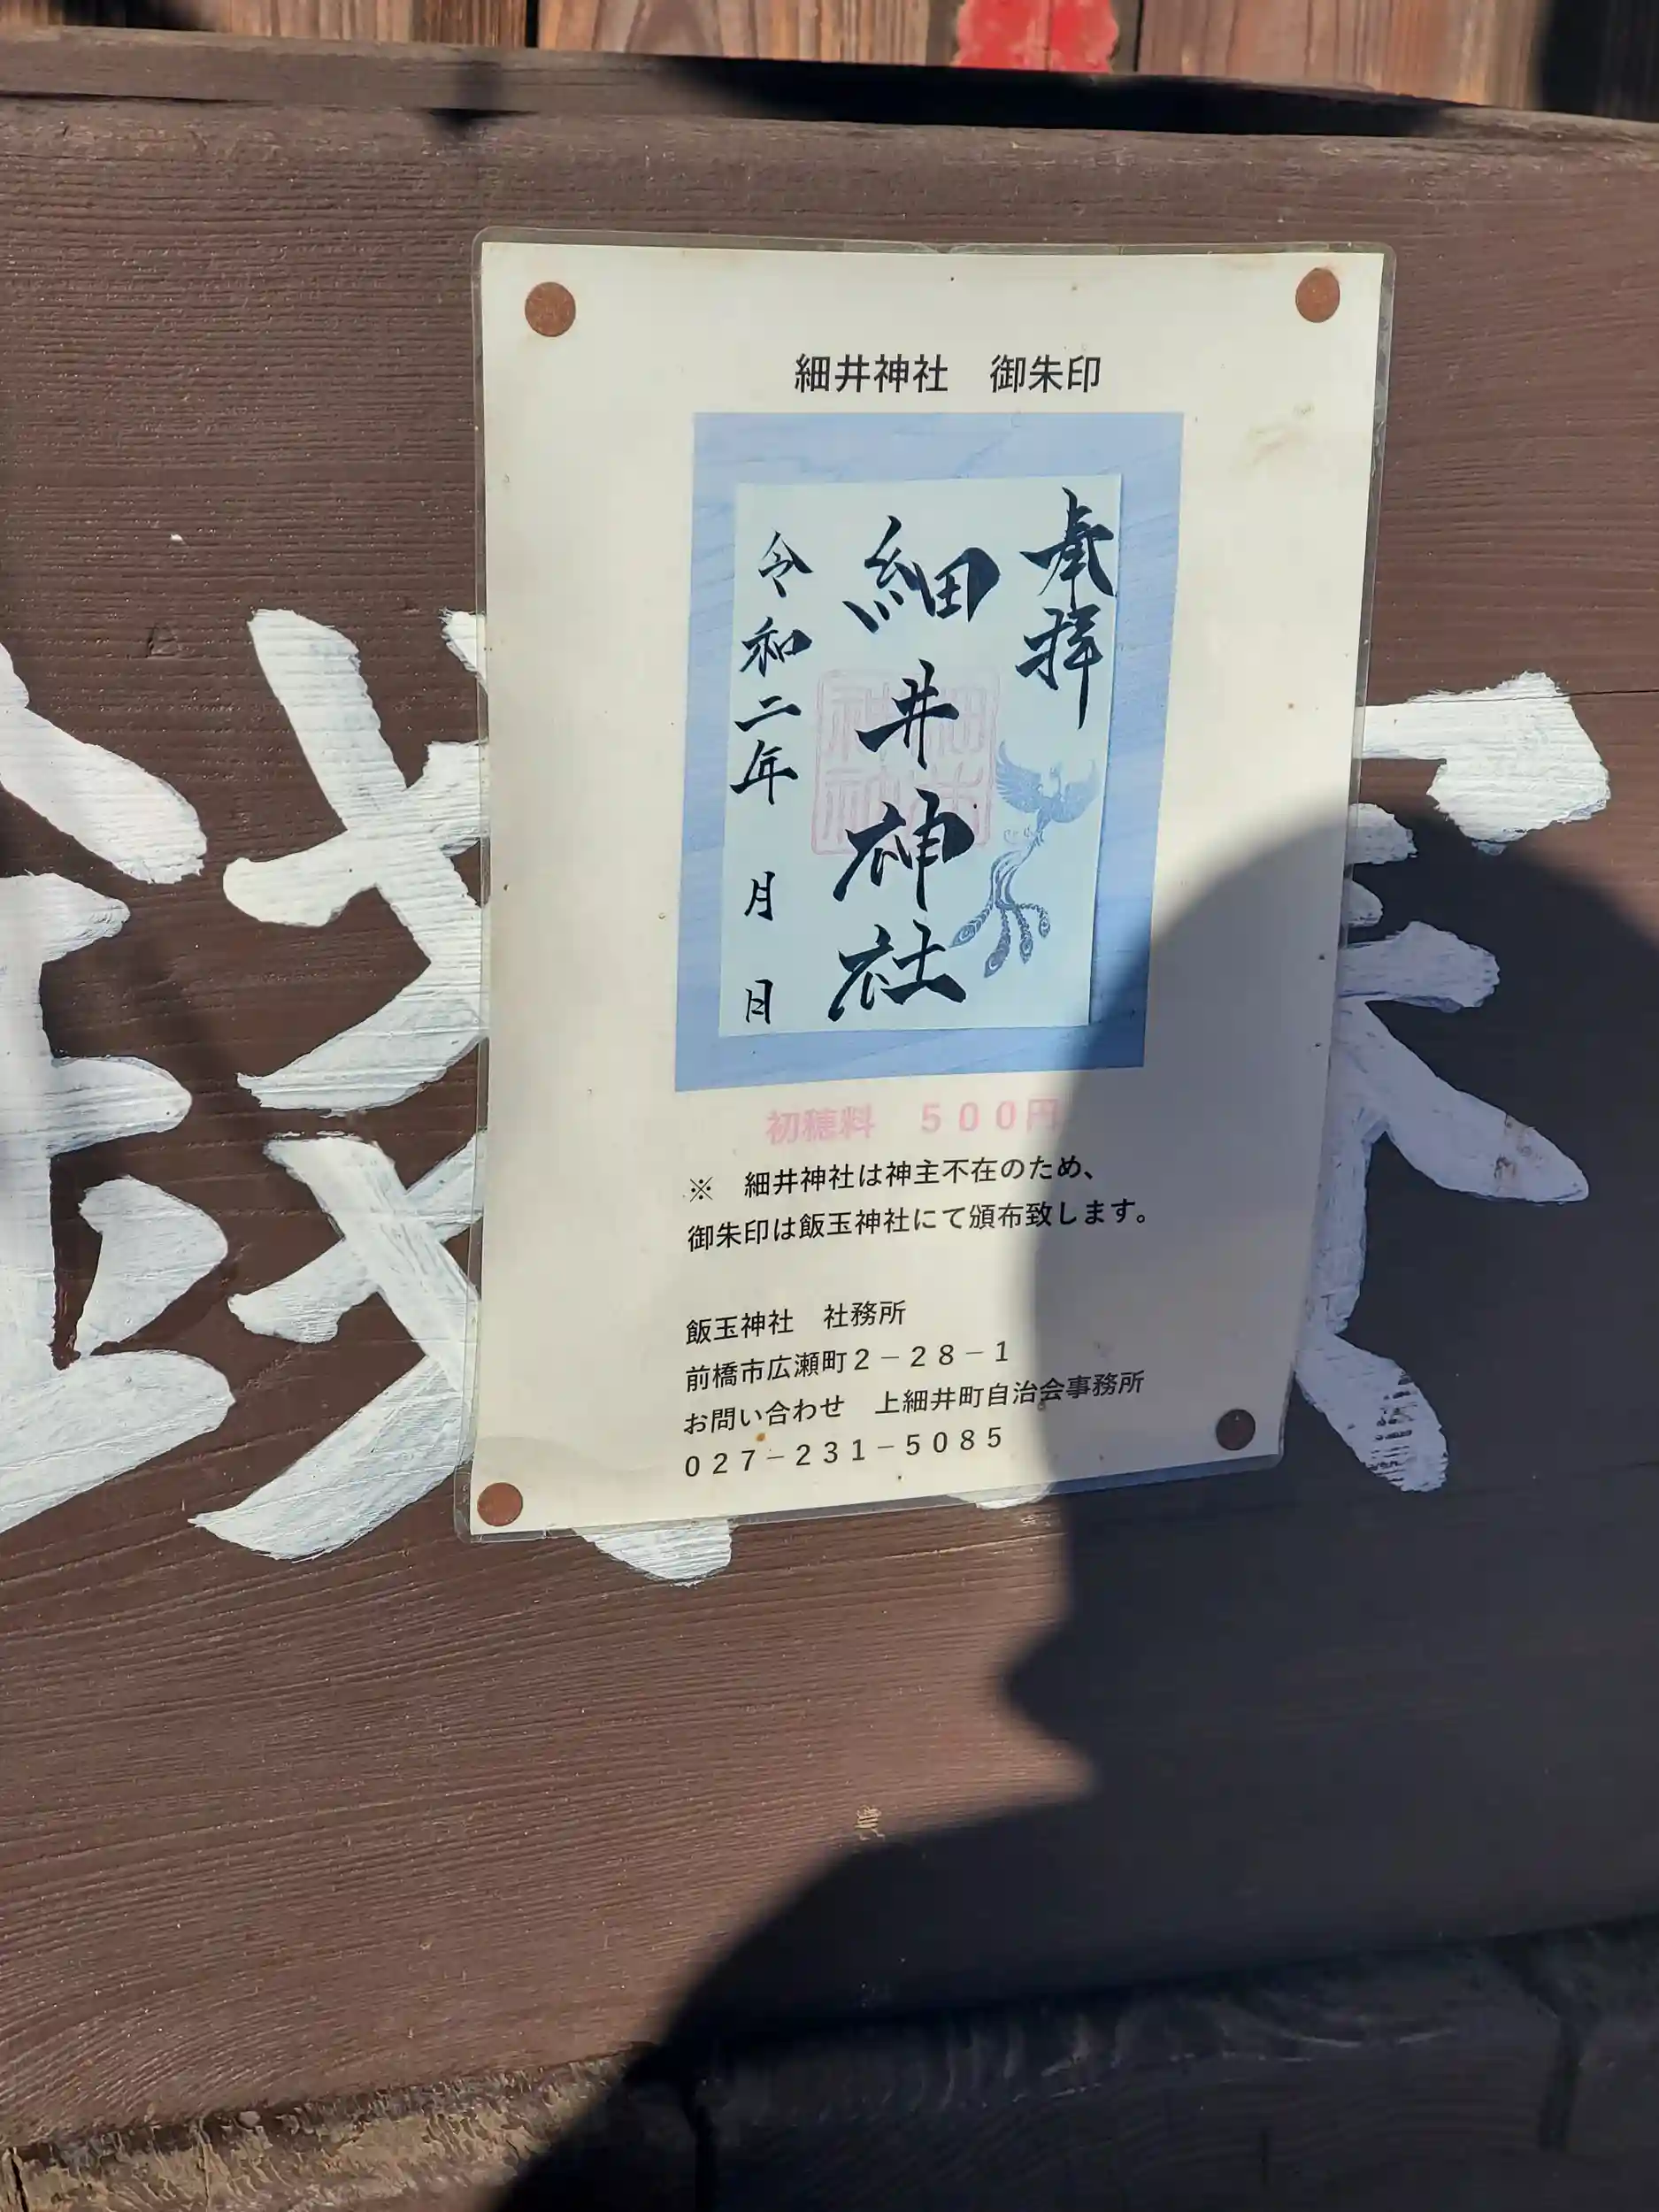 細井神社　御朱印
奉拝
細井神社
令和二年　月　日
初穂料　５００円
※　細井神社は神主不在のため、
御朱印は飯玉神社にて頒布致します。
飯玉神社　社務所
前橋市広瀬町２－２８－１
お問い合わせ　上細井町自治会事務所
０２７－２３１－５０８５